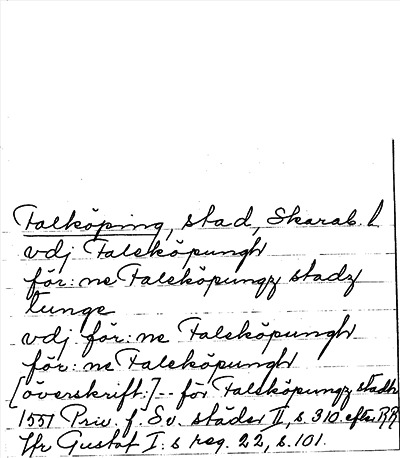 Falköping, stad, Skarab. l
vdj Faleköpungh
för: ne Faleköpungz stadz
lunge
vdj för: ne Faleköpungh
för: ne Faleköpungh
[överskrift:] -- för Faleköpungz stadh
1551 Priv. f. Sv. städer II, s. 310 efter RR
Jfr Gustaf I:s reg. 22, s. 101.